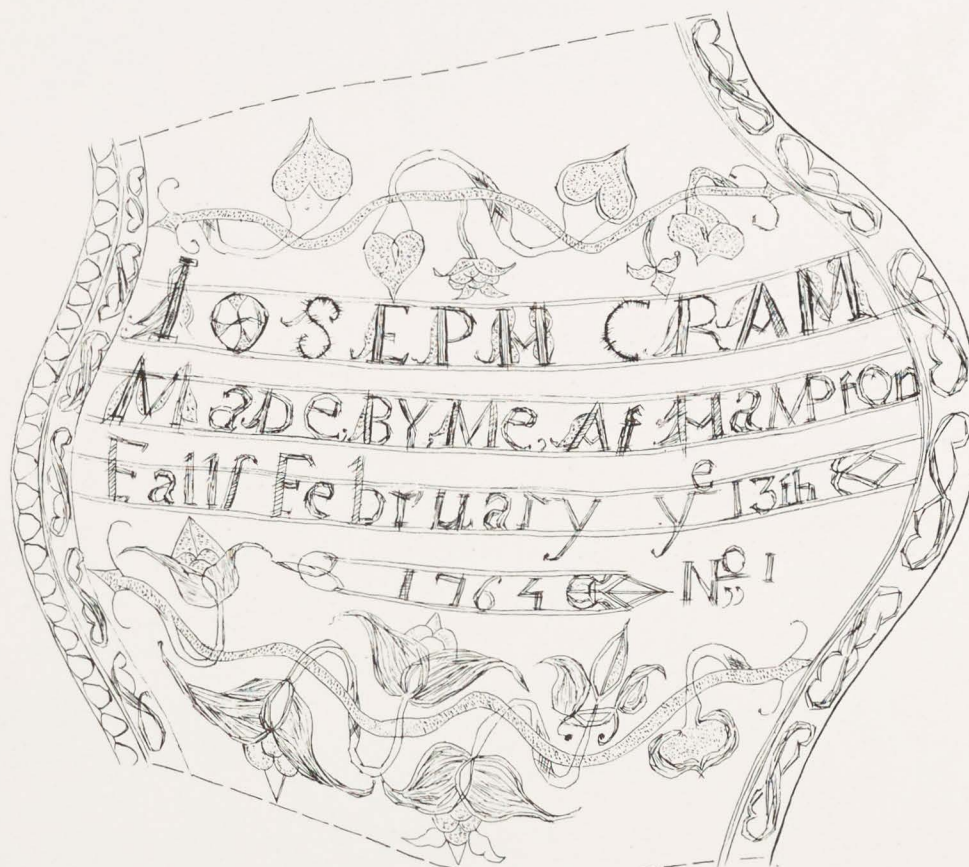 IOSEPH CRAM
MaDe.BY.Me, At HaMPton
Fallſ February yᵉ 13th
1764 Nº,, 1